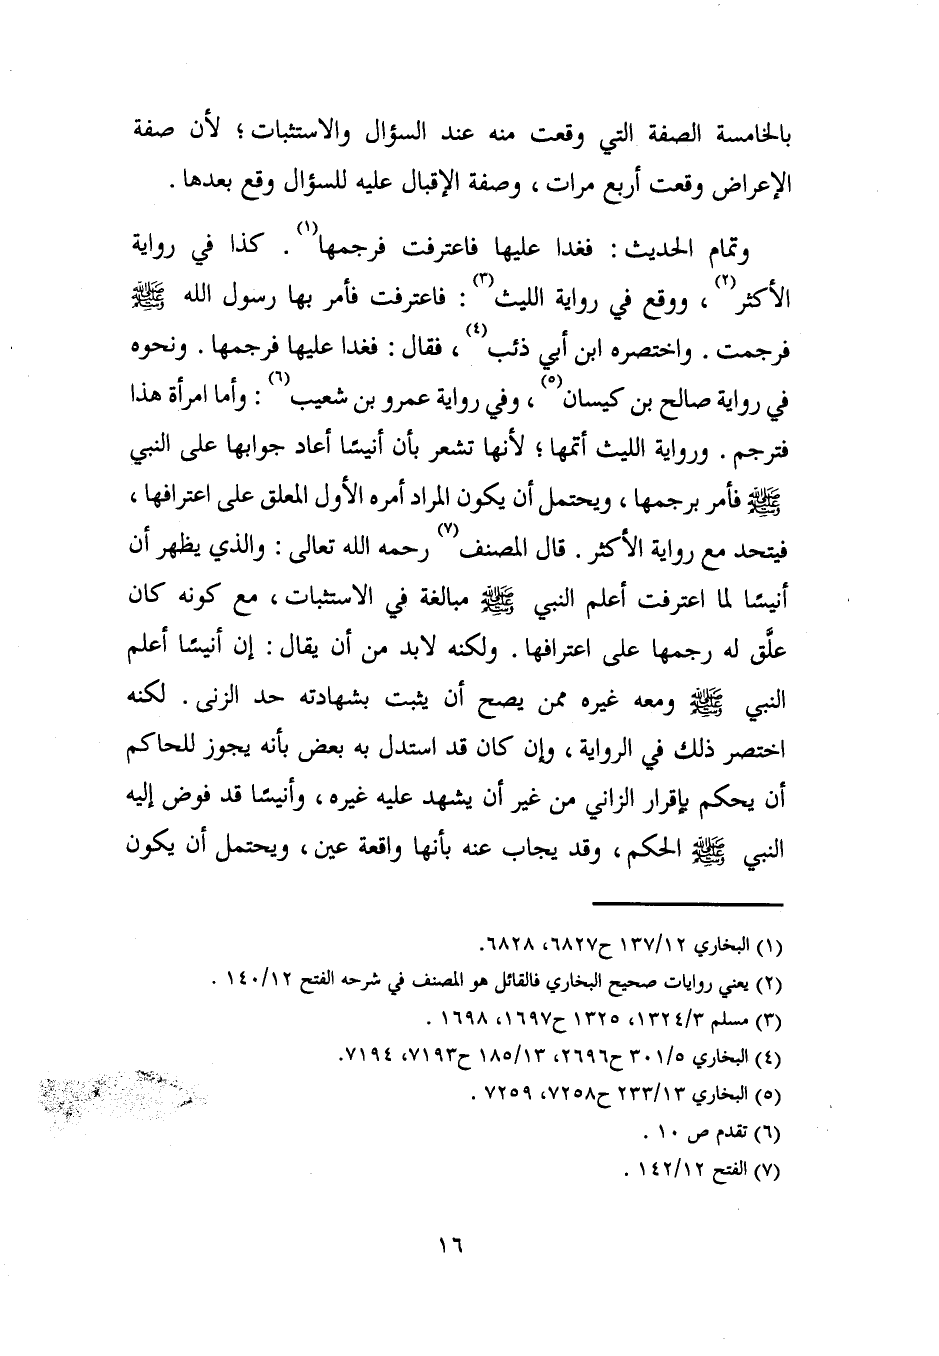 بالخامسة الصفة التي وقعت منه عند السؤال والاستثبات ؛ لأن صفة
الإعراض وقعت أربع مرات ، وصفة الإقبال عليه للسؤال وقع بعدها .
وتمام الحديث : فغدا عليها فاعترفت فرجمها(١) . كذا في رواية
الأكثر(٢) ، ووقع في رواية الليث(٣) : فاعترفت فأمر بها رسول الله ﷺ
فرجمت . واختصره ابن أبي ذئب(٤) ، فقال : فغدا عليها فرجمها . ونحوه
في رواية صالح بن كيسان(٥) ، وفي رواية عمرو بن شعيب(٦) : وأما امرأة هذا
فترجم . ورواية الليث أتمها ؛ لأنها تشعر بأن أنيسًا أعاد جوابها على النبي
ﷺ فأمر برجمها ، ويحتمل أن يكون المراد أمره الأول المعلق على اعترافها ،
فيتحد مع رواية الأكثر . قال المصنف(٧) رحمه الله تعالى : والذي يظهر أن
أنيسًا لما اعترفت أعلم النبي ﷺ مبالغة في الاستثبات ، مع كونه كان
علَّق له رجمها على اعترافها . ولكنه لابد من أن يقال : إن أنيسًا أعلم
النبي ﷺ ومعه غيره ممن يصح أن يثبت بشهادته حد الزنى . لكنه
اختصر ذلك في الرواية ، وإن كان قد استدل به بعض بأنه يجوز للحاكم
أن يحكم بإقرار الزاني من غير أن يشهد عليه غيره ، وأنيسًا قد فوض إليه
النبي ﷺ الحكم ، وقد يجاب عنه بأنها واقعة عين ، ويحتمل أن يكون
(١) البخاري ١٣٧/١٢ ح٦٨٢٧، ٦٨٢٨.
(٢) يعني روايات صحيح البخاري فالقائل هو المصنف في شرحه الفتح ١٤٠/١٢ .
(٣) مسلم ١٣٢٤/٣، ١٣٢٥ ح١٦٩٧، ١٦٩٨ .
(٤) البخاري ٣٠١/٥ ح٢٦٩٦، ١٨٥/١٣ ح٧١٩٣، ٧١٩٤.
(٥) البخاري ٢٣٣/١٣ ح٧٢٥٨، ٧٢٥٩ .
(٦) تقدم ص ١٠ .
(٧) الفتح ١٤٢/١٢ .
١٦